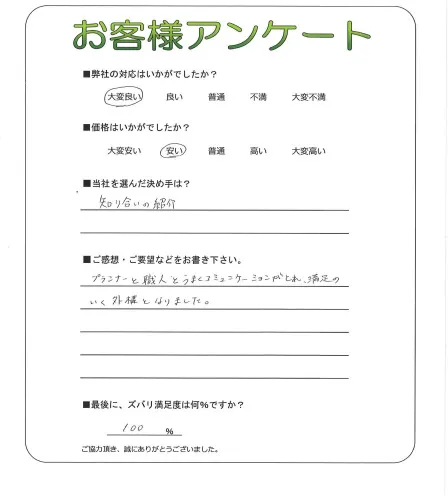 お客様アンケート
■弊社の対応はいかがでしたか？
大変良い 良い 普通 不満 大変不満
■価格はいかがでしたか？
大変安い 安い 普通 高い 大変高い
■当社を選んだ決め手は？
知り合いの紹介
■ご感想・ご要望などをお書き下さい。
プランナーと職人とうまくコミュニケーションがとれ、満足の
いく外構となりました。
■最後に、ズバリ満足度は何%ですか？
100 %
ご協力頂き、誠にありがとうございました。